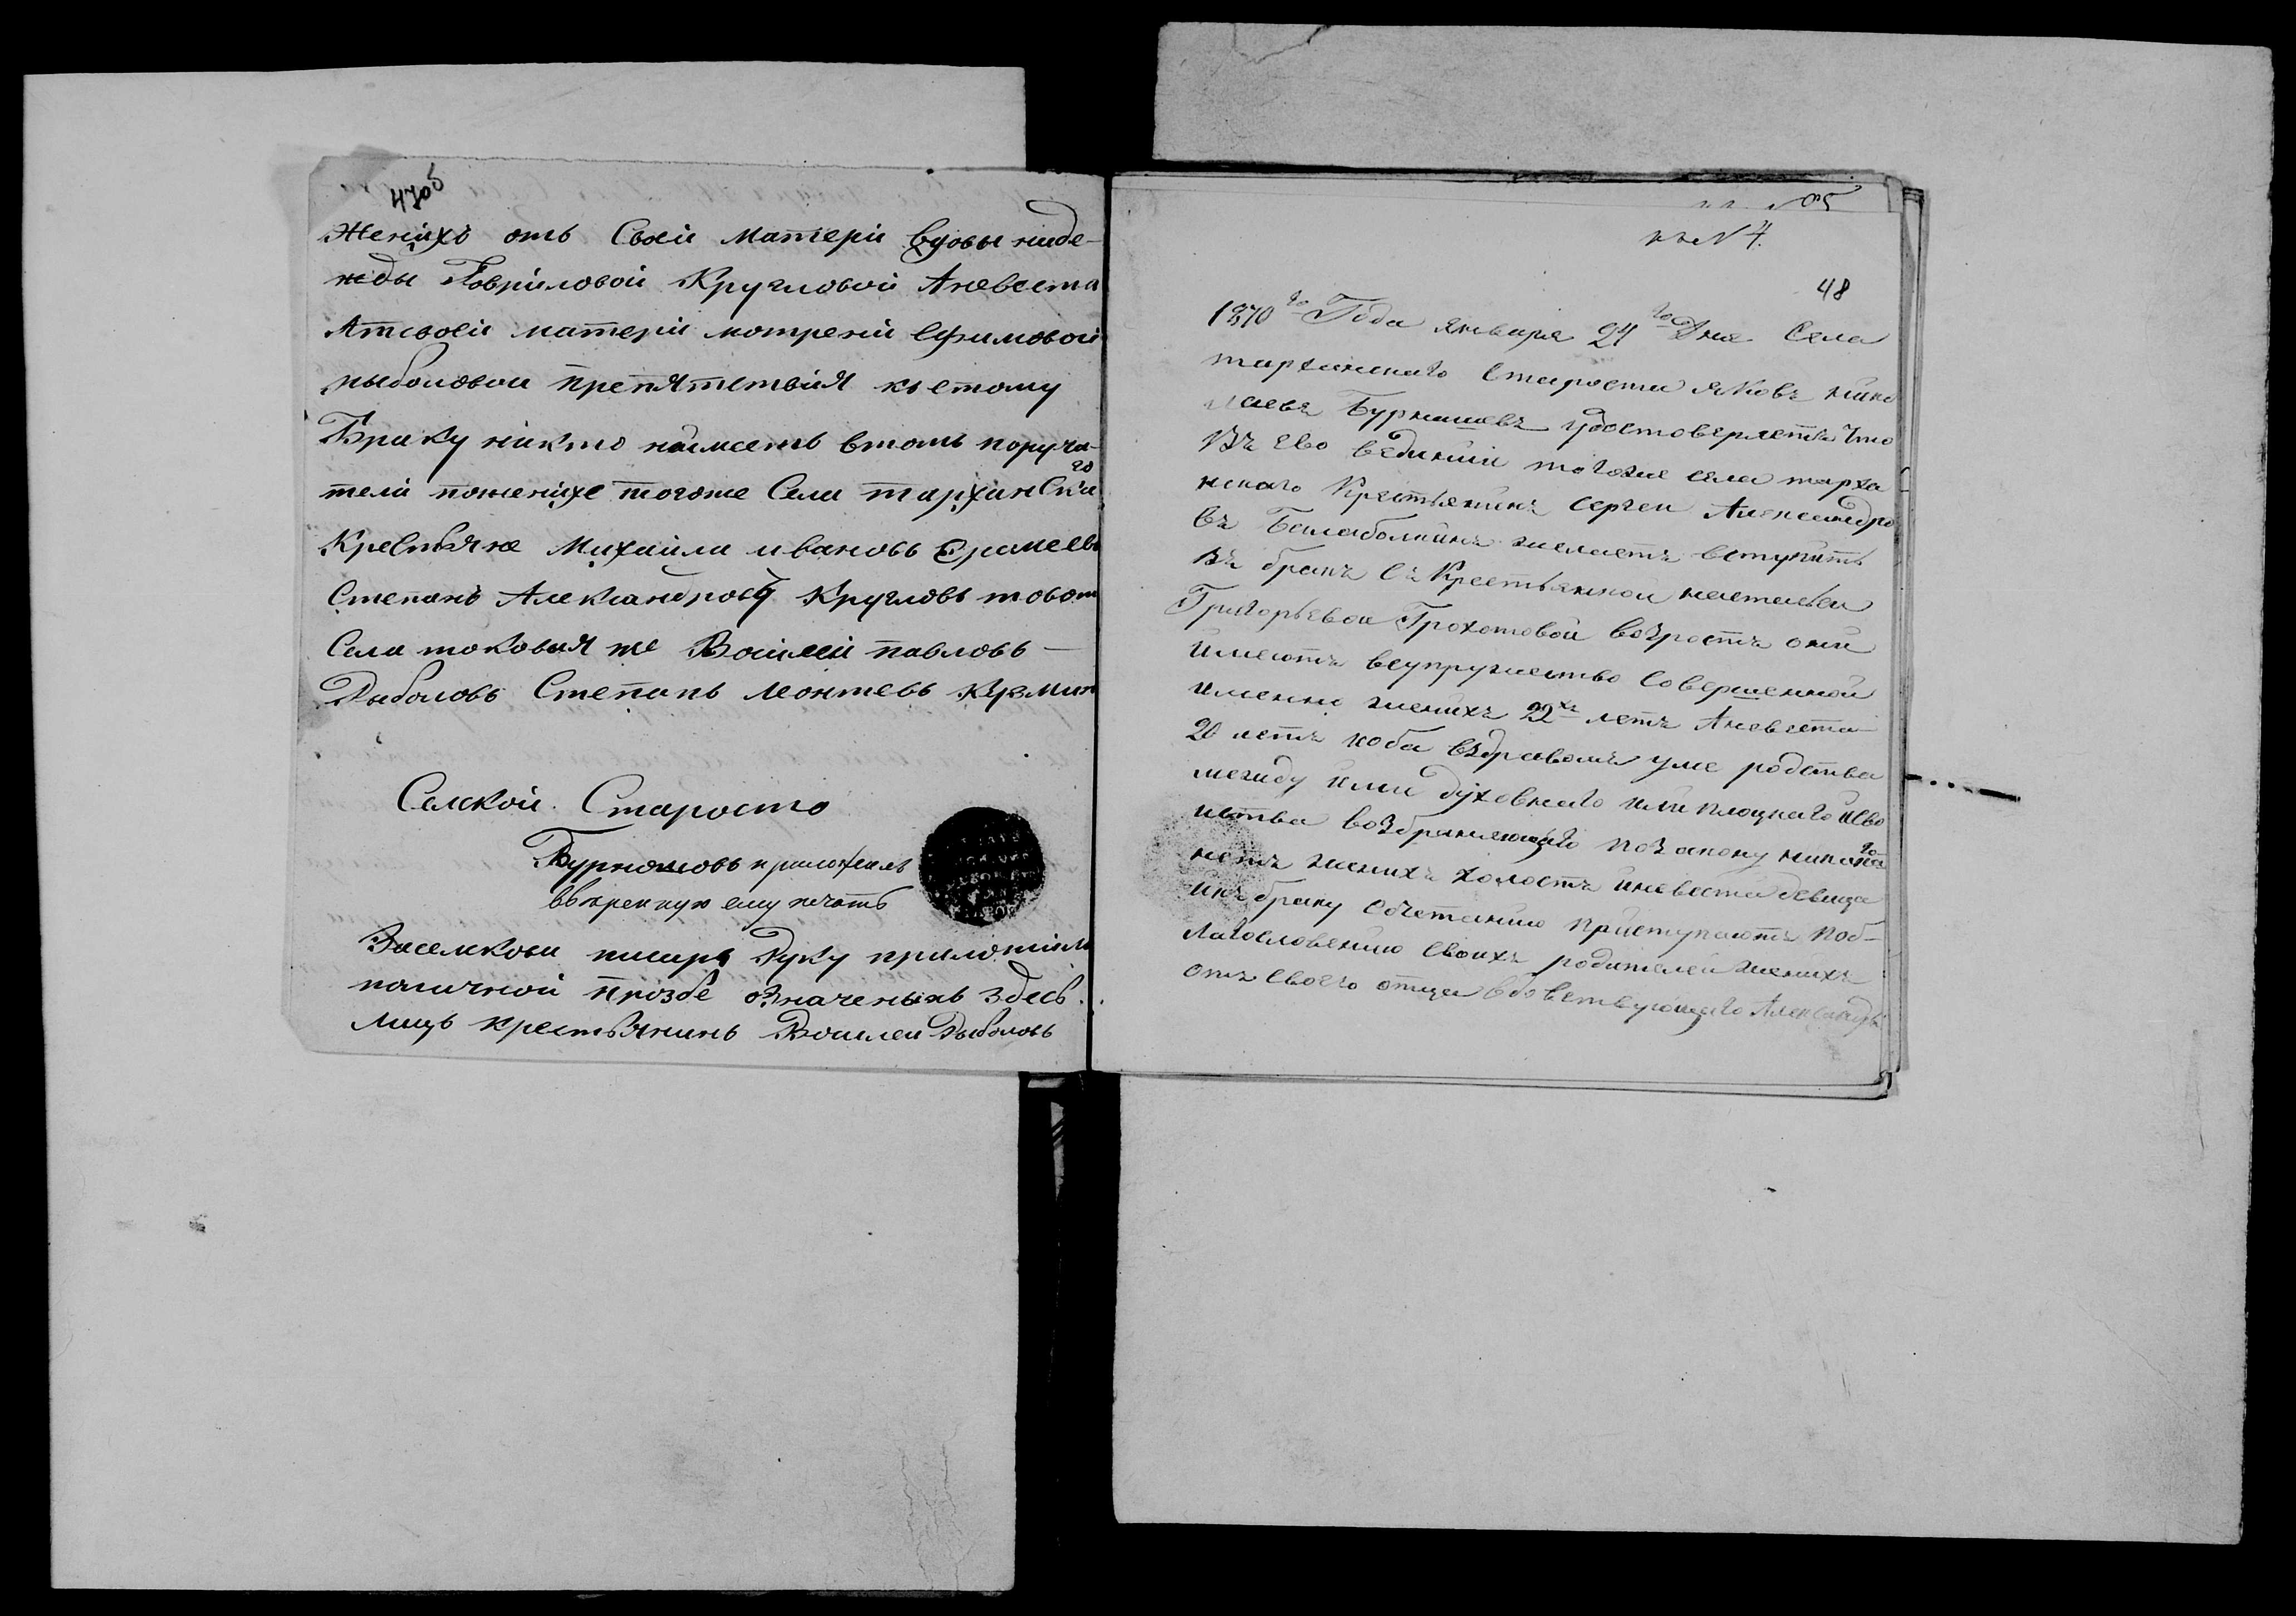 47об
Женихъ отъ Своей матери вдовы наде-
жды Гавриловой Кругловой Аневеста
Атсвоеи матери матрены Ефимовой
рыболовои препятствия кь етому
Браку никто неимеетъ втомъ поручи-
тели поженихе тогоже Села тарханскаго
Крестьяне Михаила ивановъ Еремеевъ
Степанъ Александровъ Кругловъ
Села таковыя же Василей павловъ —
Рыболовъ Степанъ леонтевъ Кузмин
Селской Староста
Бурнашовъ приложилъ
ввѣренную ему печать
писаръ Руку приложилъ
поличной прозбе означеныхъ здесь
лицъ крестьянинъ Василеи Рыболовъ
№ 5
№ 4.
48
1870го Года января 24го Дня Села
тарханскаго Староста яковъ нико
лаевъ Бурнашевъ удостоверяетъ что
Въ ево ведении тогоже села тарха
нскаго Крестьянинъ сергеи Александро
въ Балаболкинъ желаетъ вступить
въ бракъ съ Крестьянкои настасьеи
Григорьевои Грохотовой возрастъ они
имеютъ всупружество совершенной
именно женихъ 22хъ летъ Аневеста
20 летъ иоба вздравомъ уме родства
между ими духовнаго или плоцкаго исво
иства возбраняющаго по закону никакаго
нетъ женихъ холостъ иневеста девица
икъ браку сочетанию приступаютъ поб-
лагословению своихъ родителей женихъ
отъ своего отца Александра